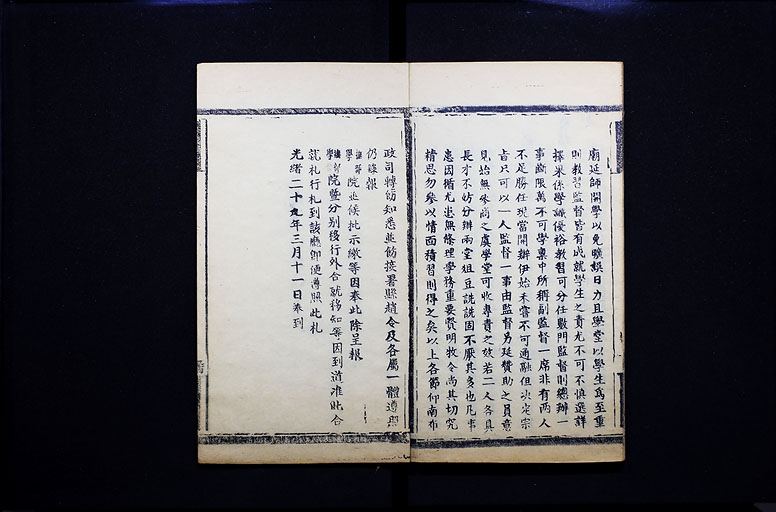 廟延師開學以免曠誤日力且學堂以學生爲至重
則教習監督皆有成就學生之責尤不可不慎選詳
擇果係學識優裕教習可分任數門監督則總辦一
事斷限萬不可學稟中所稱副監督一席非有兩人
不足勝任現當開辦伊始未嘗不可通融但決定宗
旨只可以一人監督一事由監督另延贊助之員意
見始無參商之虞學堂可收專責之效若二人各具
長才不妨分辦兩堂俎豆詵詵固不厭其多也凡事
患因循尤患無條理學務重要賢明牧令尚其切究
精思勿參以情面積習則得之矣以上各節仰南布
政司轉飭知悉並飭接署縣趙令及各屬一體遵照
仍錄報
學院並候批示繳等因奉此除呈報
學院暨分別移行外合就移知等因到道准此合
就札行札到該廳即便遵照此札
光緒二十九年三月十一日奉到